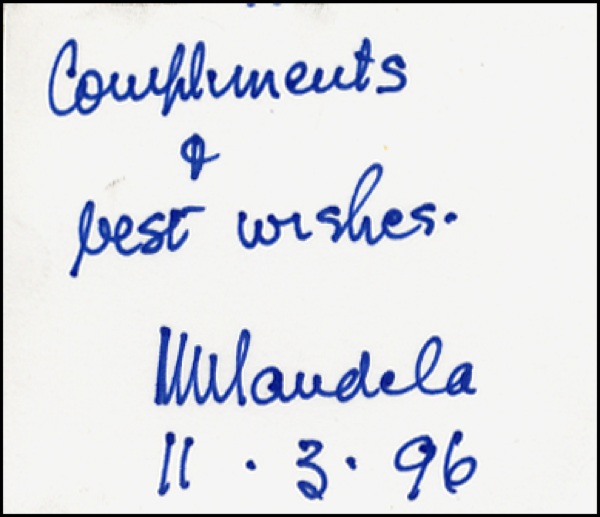 Compliments
&
best wishes.
NMandela
11 . 3 . 96